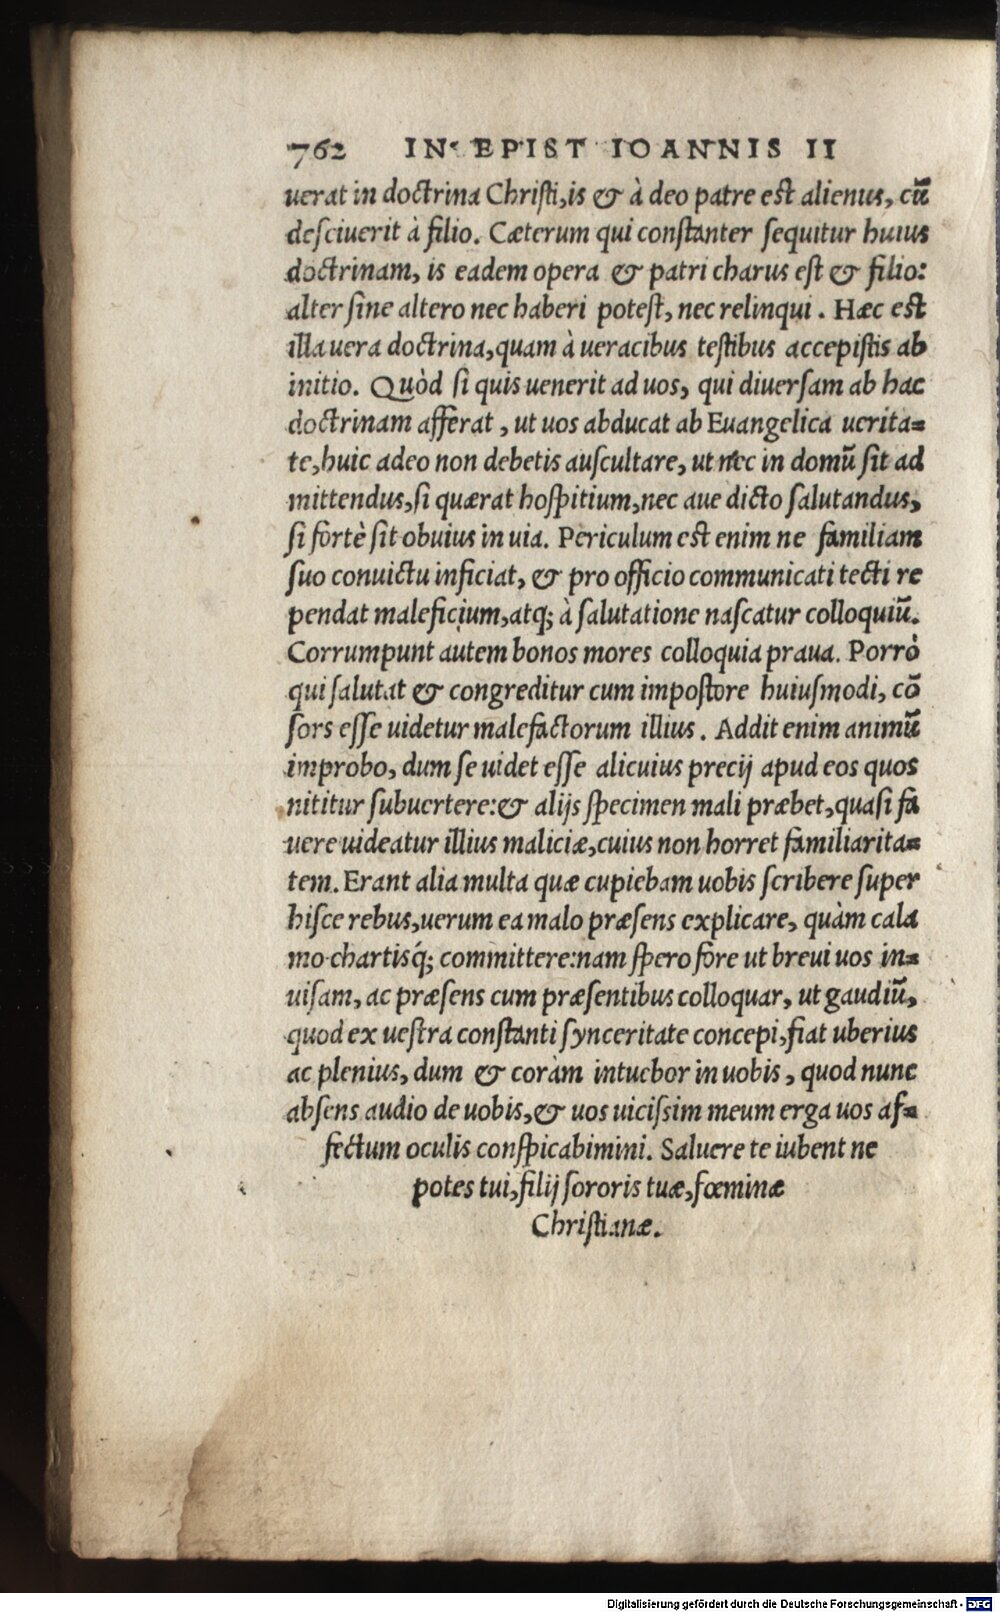 762 IN EPIST IOANNIS II
uerat in doctrina Christi, is & à deo patre est alienus, cũ
desciuerit à filio. Cæterum qui constanter sequitur huius
doctrinam, is eadem opera & patri charus est & filio:
alter sine altero nec haberi potest, nec relinqui. Hæc est
illa uera doctrina, quam à ueracibus testibus accepistis ab
initio. Quòd si quis uenerit ad uos, qui diuersam ab hac
doctrinam afferat, ut uos abducat ab Euangelica uerita=
te, huic adeo non debetis auscultare, ut nec in domũ sit ad
mittendus, si quærat hospitium, nec aue dicto salutandus,
si fortè sit obuius in uia. Periculum est enim ne familiam
suo conuictu inficiat, & pro officio communicati tecti re
pendat maleficium, atq; à salutatione nascatur colloquiũ.
Corrumpunt autem bonos mores colloquia praua. Porrò
qui salutat & congreditur cum impostore huiusmodi, cõ
sors esse uidetur malefactorum illius. Addit enim animũ
improbo, dum se uidet esse alicuius precij apud eos quos
nititur subuertere: & alijs specimen mali præbet, quasi fa
uere uideatur illius maliciæ, cuius non horret familiarita=
tem. Erant alia multa quæ cupiebam uobis scribere super
hisce rebus, uerum ea malo præsens explicare, quàm cala
mo chartisq́; committere: nam spero fore ut breui uos in=
uisam, ac præsens cum præsentibus colloquar, ut gaudiũ,
quod ex uestra constanti synceritate concepi, fiat uberius
ac plenius, dum & coràm intuebor in uobis, quod nunc
absens audio de uobis, & uos uicissim meum erga uos af=
fectum oculis conspicabimini. Saluere te iubent ne
potes tui, filij sororis tuæ, fœminæ
Christianæ.
Digitalisierung gefördert durch die Deutsche Forschungsgemeinschaft - DFG